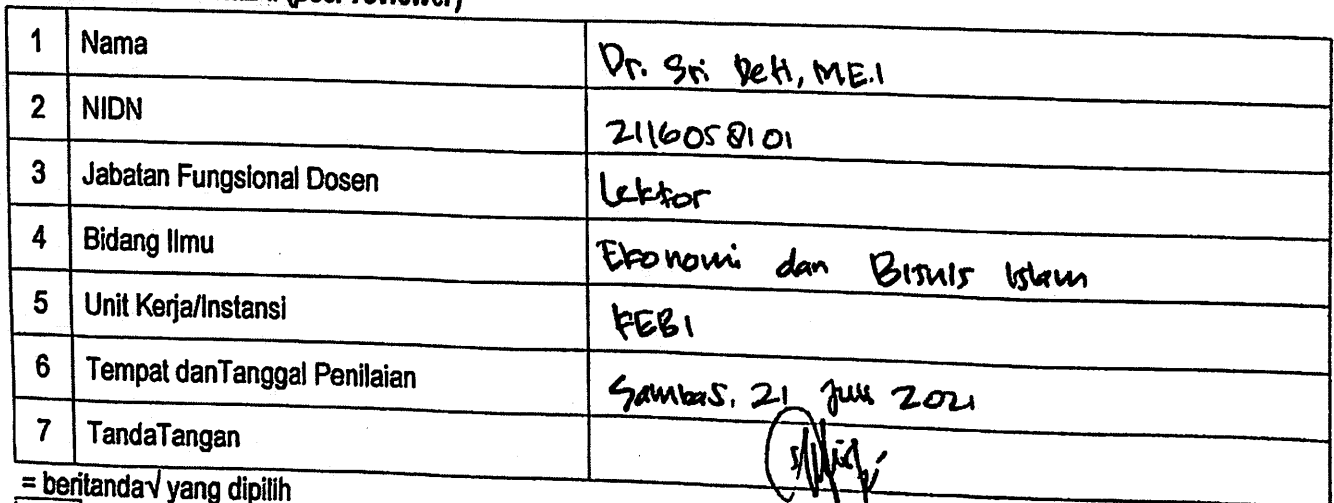 (peer reviewer)
1 Nama Dr. Sri Deti, ME.I
2 NIDN 2116058101
3 Jabatan Fungsional Dosen Lektor
4 Bidang Ilmu Ekonomi dan Bisnis Islam
5 Unit Kerja/Instansi FEBI
6 Tempat danTanggal Penilaian Sambas, 21 2021
7 TandaTangan
= beritanda√ yang dipilih